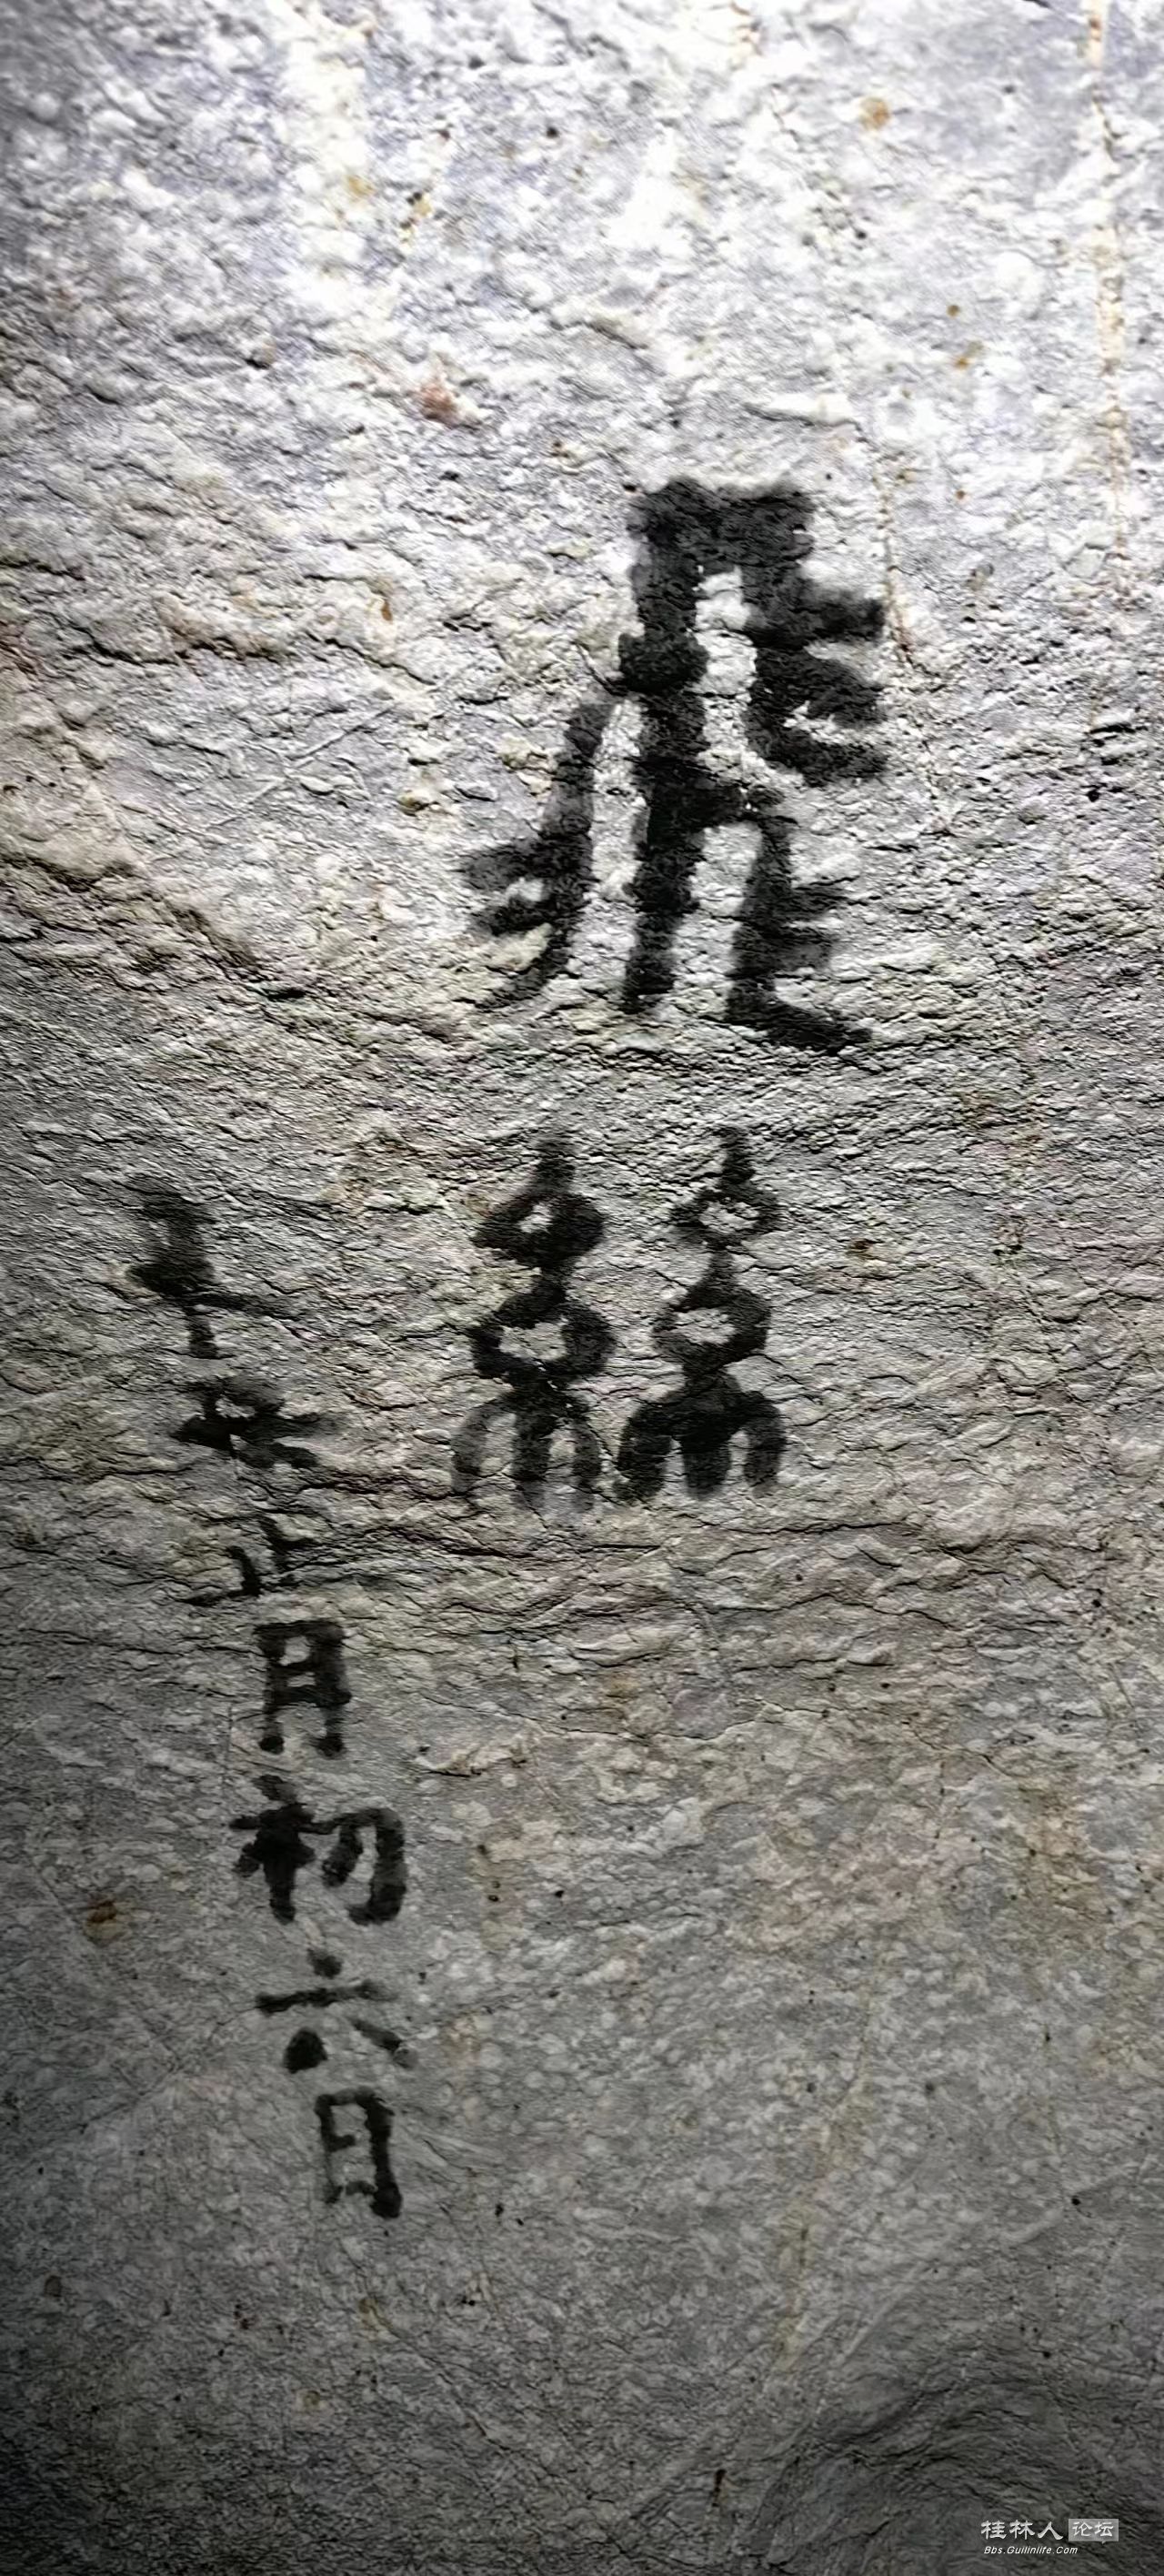 飛絲
正月初六日
桂林人论坛
Bbs.Guilinlife.Com